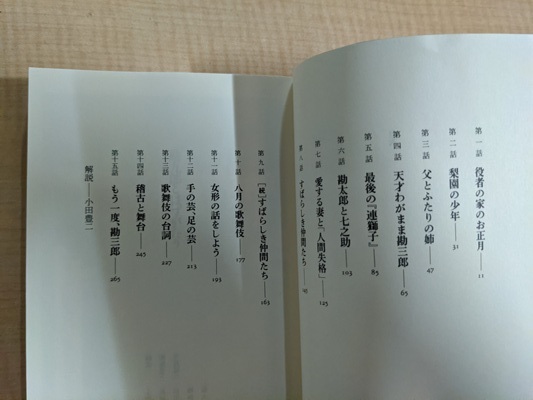 第一話 役者の家のお正月——11
第二話 梨園の少年——31
第三話 父とふたりの姉——47
第四話 天才わがまま勘三郎——65
第五話 最後の『連獅子』——85
第六話 勘太郎と七之助——103
第七話 愛する妻と、「人間失格」——125
第八話 すばらしき仲間たち——
第九話 [続]すばらしき仲間たち——163
第十話 八月の歌舞伎——177
第十一話 女形の話をしよう——193
第十二話 手の芸、足の芸——213
第十三話 歌舞伎の台詞——227
第十四話 稽古と舞台——245
第十五話 もう一度、勘三郎——265
解説——小田豊二